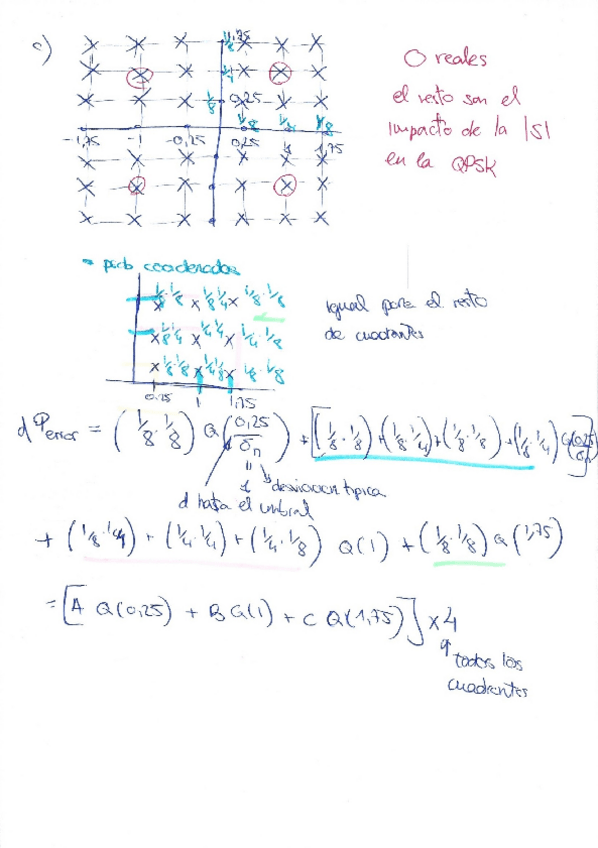 c)
1/8 1,75
1/4
1/8 0,25
1/8 1/4 1/8
-1,75 -1 -0,25 0,25 1 1,75
O reales
el resto son el
impacto de la ISI
en la QPSK
→ prob coordenadas
1/8·1/8 1/8·1/4 1/8·1/8
1/8·1/4 1/4·1/4 1/4·1/8
1/8·1/8 1/4·1/8 1/8·1/8
0,25 1 1,75
igual para el resto
de cuadrantes
d) Perror = (1/8·1/8) Q(0,25/σn) + [(1/8·1/8)+(1/8·1/4)+(1/8·1/8)+(1/8·1/4) Q(0,25/σn)]
desviación típica
d hasta el umbral
+ (1/8·1/4) + (1/4·1/4) + (1/4·1/8) Q(1) + (1/8·1/8) Q(1,75)
= [A Q(0,25) + B Q(1) + C Q(1,75)] x 4
todos los
cuadrantes